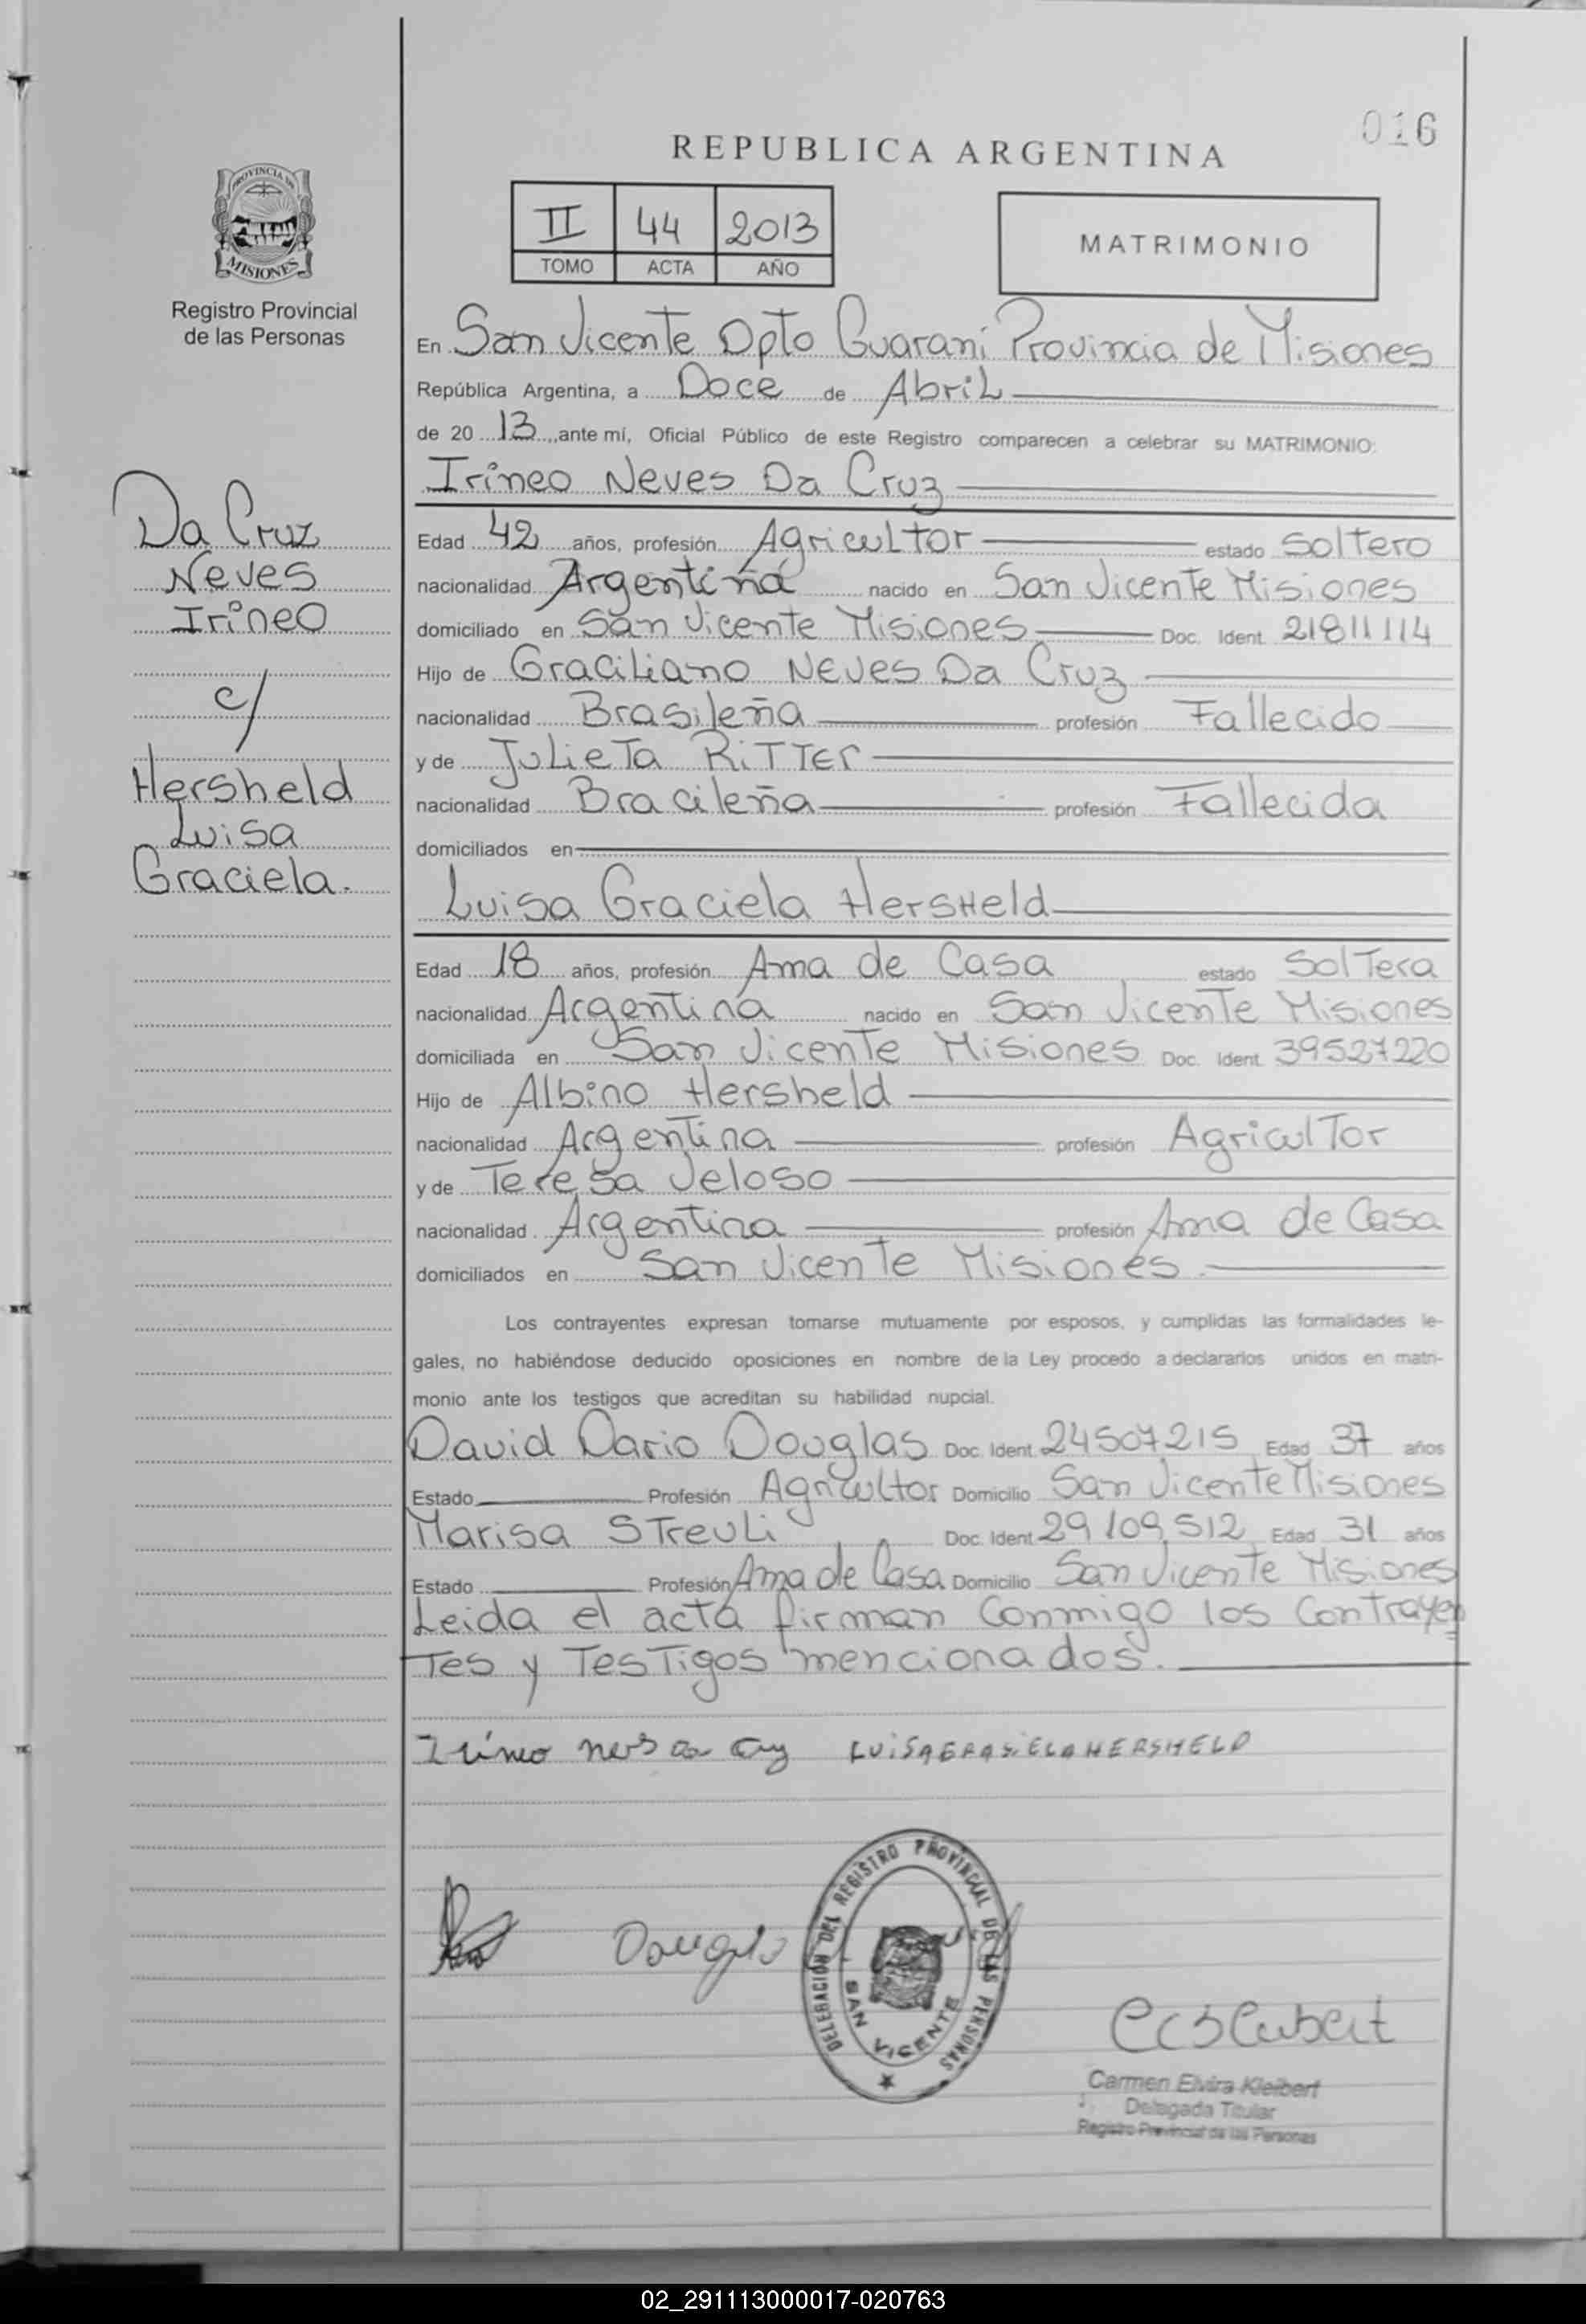 016
REPUBLICA ARGENTINA
PROVINCIA DE
MISIONES
Registro Provincial
de las Personas
II 44 2013
TOMO ACTA AÑO
MATRIMONIO
En San Vicente Dpto Guaraní Provincia de Misiones
República Argentina, a Doce de Abril
de 20 13, ante mí, Oficial Público de este Registro comparecen a celebrar su MATRIMONIO:
Irineo Neves Da Cruz
Da Cruz
Neves
Irineo
c/
Hersheld
Luisa
Graciela.
Edad 42 años, profesión Agricultor estado Soltero
nacionalidad Argentina nacido en San Vicente Misiones
domiciliado en San Vicente Misiones Doc. Ident. 21811114
Hijo de Graciliano Neves Da Cruz
nacionalidad Brasileña profesión Fallecido
y de Julieta Ritter
nacionalidad Bracileña profesión Fallecida
domiciliados en
Luisa Graciela Hersheld
Edad 18 años, profesión Ama de Casa estado Soltera
nacionalidad Argentina nacido en San Vicente Misiones
domiciliada en San Vicente Misiones Doc. Ident. 39527220
Hijo de Albino Hersheld
nacionalidad Argentina profesión Agricultor
y de Teresa Veloso
nacionalidad Argentina profesión Ama de Casa
domiciliados en San Vicente Misiones.
Los contrayentes expresan tomarse mutuamente por esposos, y cumplidas las formalidades le-
gales, no habiéndose deducido oposiciones en nombre de la Ley procedo a declararlos unidos en matri-
monio ante los testigos que acreditan su habilidad nupcial.
David Dario Douglas Doc. Ident. 24507215 Edad 37 años
Estado Profesión Agricultor Domicilio San Vicente Misiones
Marisa Streuli Doc. Ident. 29109512 Edad 31 años
Estado Profesión Ama de Casa Domicilio San Vicente Misiones
Leida el acta firman conmigo los contrayen
tes y testigos mencionados.
LUISA GRASIELA HERSHELD
DELEGACIÓN DEL REGISTRO PROVINCIAL DE LAS PERSONAS
SAN VICENTE
Carmen Elvira Kleibert
Delegada Titular
Registro Provincial de las Personas
02_291113000017-020763